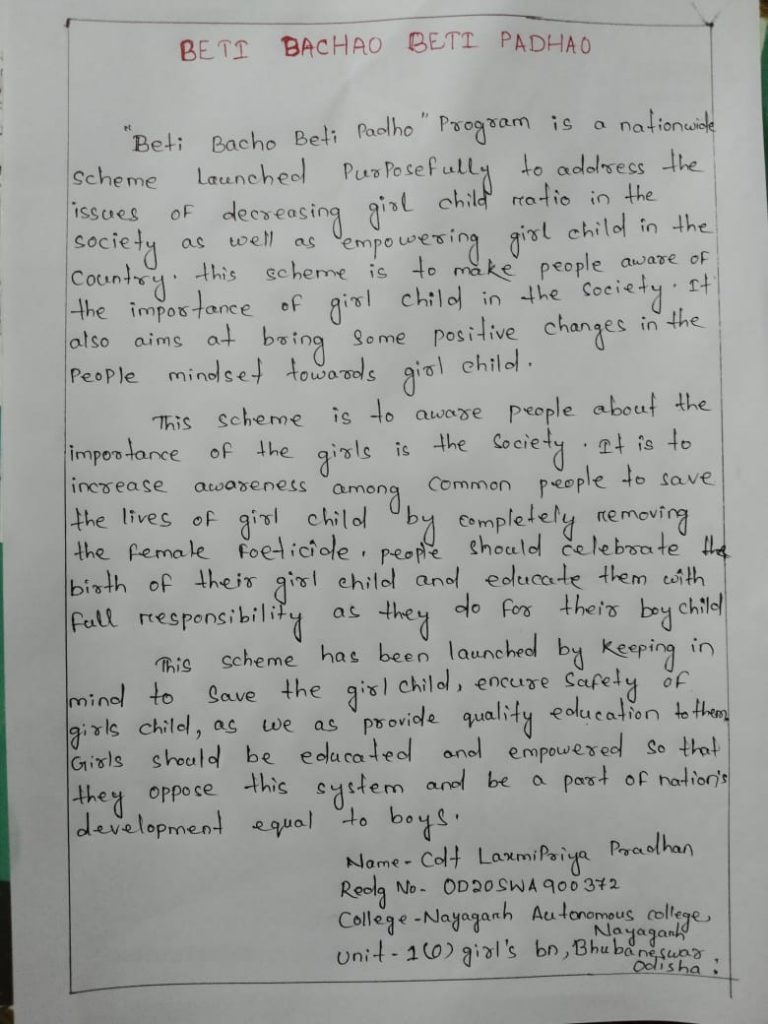 BETI BACHAO BETI PADHAO
"Beti Bacho Beti Padho" Program is a nationwide
scheme Launched Purposefully to address the
issues of decreasing girl child ratio in the
society as well as empowering girl child in the
Country. this scheme is to make people aware of
the importance of girl child in the society. It
also aims at bring some positive changes in the
People mindset towards girl child.
This scheme is to aware people about the
importance of the girls is the society. It is to
increase awareness among common people to save
the lives of girl child by completely removing
the female foeticide. people should celebrate the
birth of their girl child and educate them with
full responsibility as they do for their boy child
This scheme has been launched by keeping in
mind to save the girl child, encure safety of
girls child, as we as provide quality education to them
Girls should be educated and empowered so that
they oppose this system and be a part of nation's
development equal to boys.
Name - Cdt LaxmiPriya Pradhan
Redg No- OD20SWA900372
College - Nayagarh Autonomous college,
Nayagarh
Unit - 1(O) girl's bn, Bhubaneswar,
Odisha.